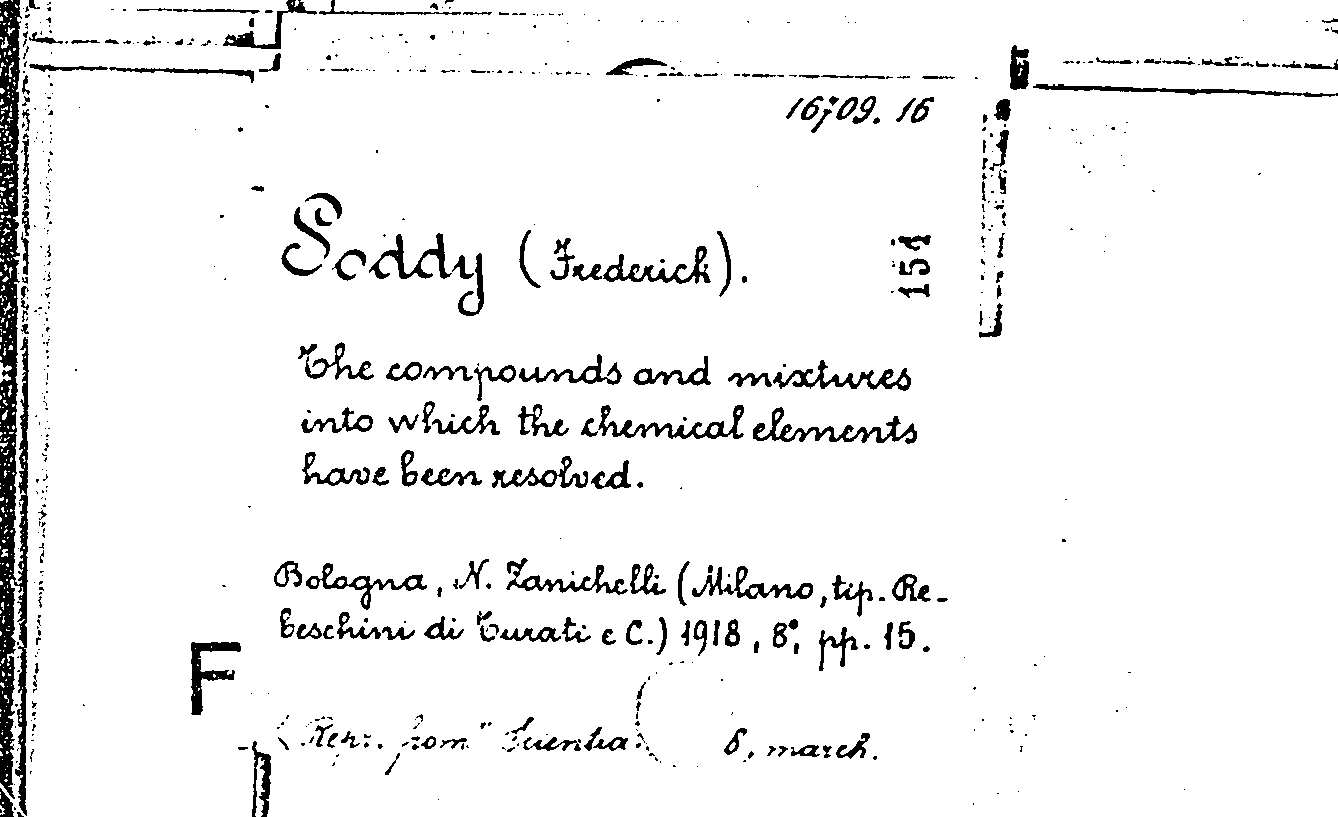 16709.16
Soddy (Frederick).
151
The compounds and mixtures
into which the chemical elements
have been resolved.
Bologna, N. Zanichelli (Milano, tip. Re-
beschini di Turati e C.) 1918, 8°, pp. 15.
F
(Repr. from "Scientia
8, march.